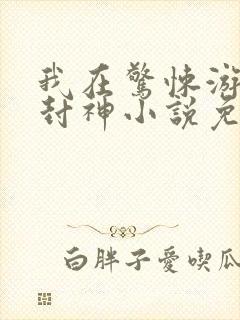 我在驚悚游
封神小說免
白胖子愛喫瓜